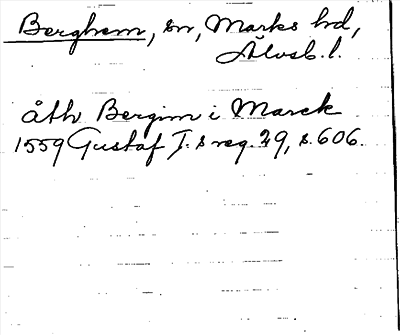 Berghem, sn, Marks hd,
Älvsb. l.
åth Bergim i Marck
1559 Gustaf I:s reg. 29, s. 606.